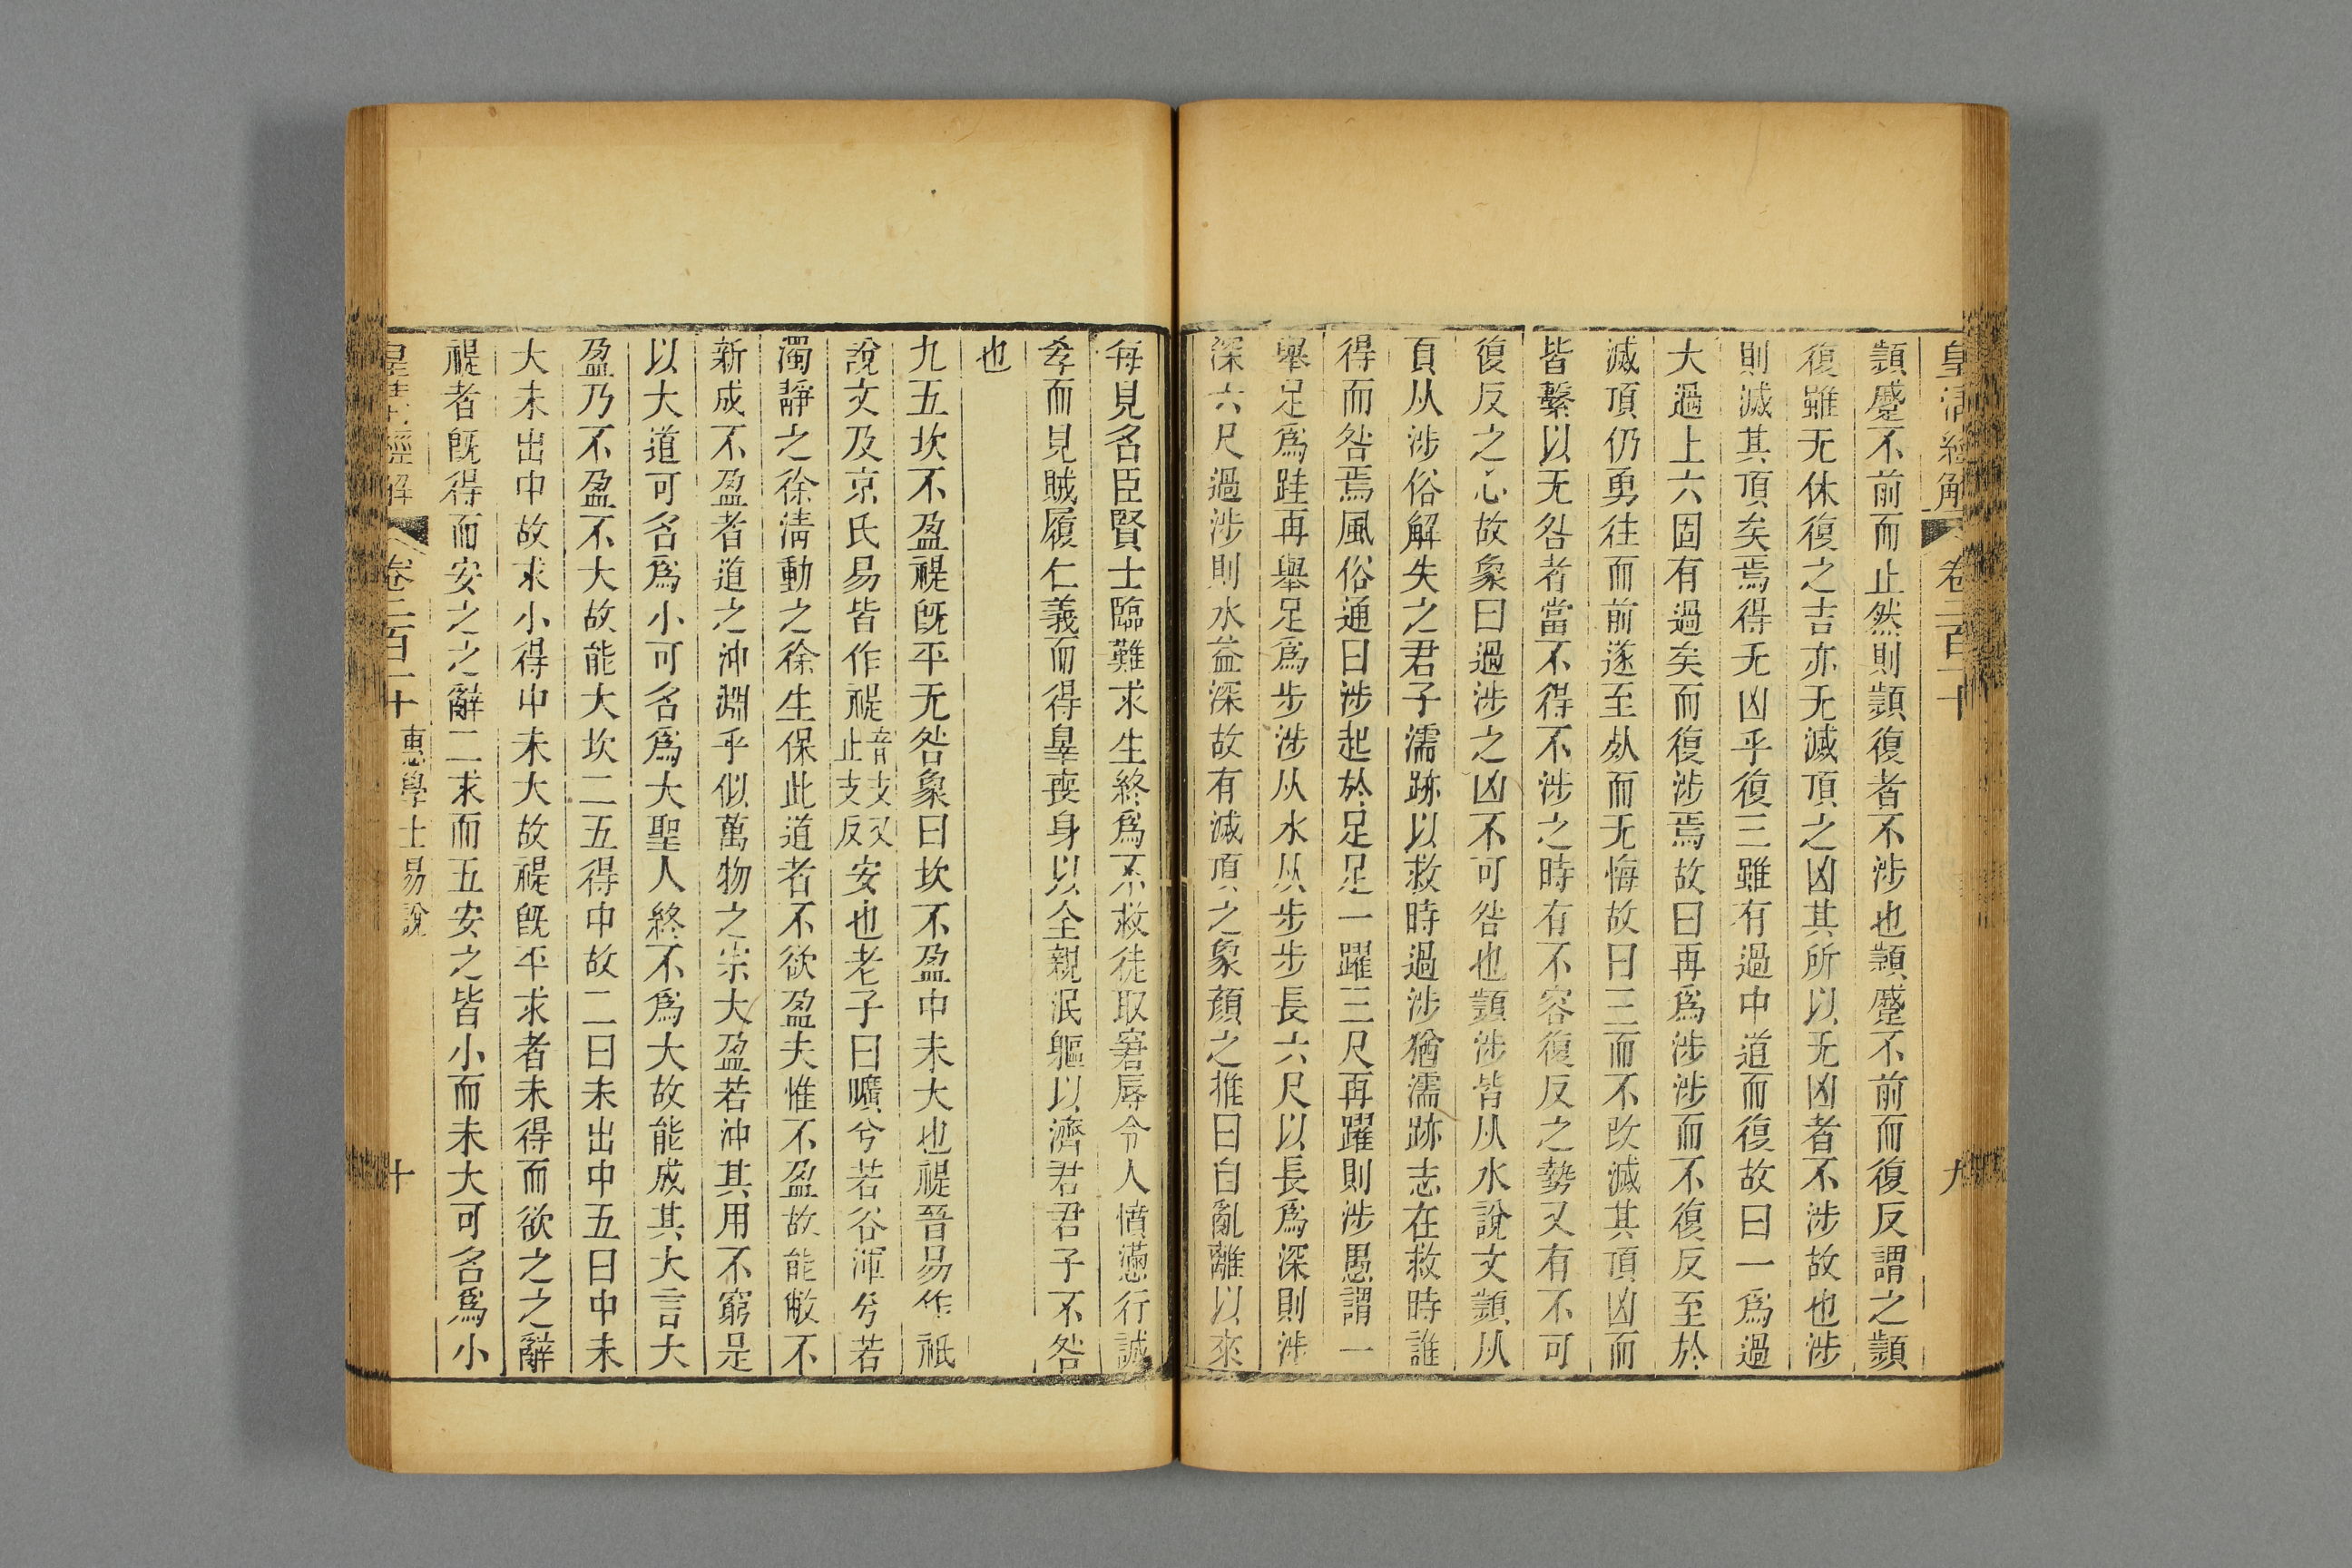 皇清經解 卷二百十 九
顰蹙不前而止然則顰復者不涉也顰蹙不前而復反謂之顰
復雖无休復之吉亦无滅頂之凶其所以无凶者不涉故也涉
則滅其頂矣焉得无凶乎復三雖有過中道而復故曰一爲過
大過上六固有過矣而復涉焉故曰再爲涉涉而不復反至於
滅頂仍勇往而前遂至㷼而无悔故曰三而不改滅其頂凶而
皆繫以无咎者當不得不涉之時有不容復反之勢又有不可
復反之心故象曰過涉之凶不可咎也顰涉皆从水說文顰从
頁从涉俗解失之君子濡跡以救時過涉猶濡跡志在救時誰
得而咎焉風俗通曰涉起於足足一躍三尺再躍則涉愚謂一
舉足爲跬再舉足爲步涉从水从步步長六尺以長爲深則涉
深六尺過涉則水益深故有滅頂之象顏之推曰自亂離以來
每見名臣賢士臨難求生終爲不救徒取窘辱令人憤懣行誠
孝而見賊履仁義而得辠喪身以全親泯軀以濟君君子不咎
也
九五坎不盈禔旣平无咎象曰坎不盈中未大也禔晉易作祇
說文及京氏易皆作禔音支又止支反安也老子曰曠兮若谷渾兮若
濁靜之徐淸動之徐生保此道者不欲盈夫惟不盈故能敝不
新成不盈者道之沖淵乎似萬物之宗大盈若沖其用不窮是
以大道可名爲小可名爲大聖人終不爲大故能成其大言大
盈乃不盈不大故能大坎二五得中故二曰未出中五曰中未
大未出中故求小得中未大故禔旣平求者未得而欲之之辭
禔者旣得而安之之辭二求而五安之皆小而未大可名爲小
皇清經解 卷二百十 惠學士易說 十